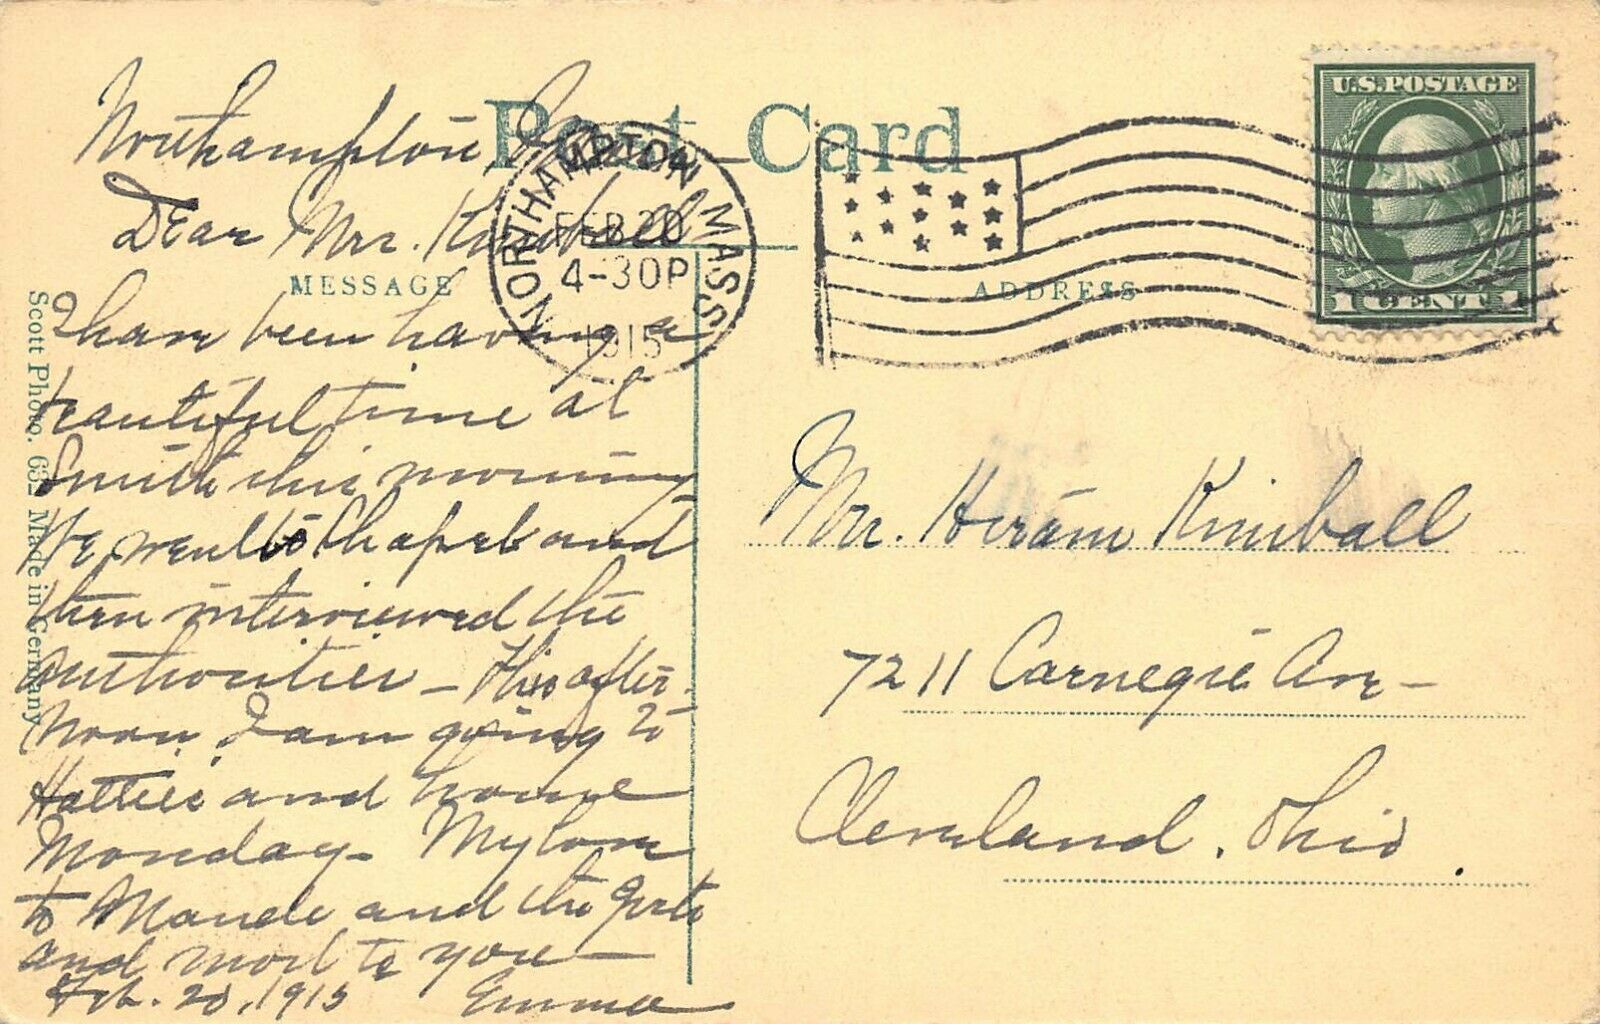 Post Card
Northampton,
Dear Mrs. Kimball
MESSAGE
I have been having a
beautiful time at
Smith this morning
We went to Chapel and
then interviewed the
authorities — This after-
noon I am going to
Hattie's and home
Monday - My love
to Maude and the girls
and most to you —
Feb. 20, 1915 Emma
Scott Photo. 632 Made in Germany
NORTHAMPTON MASS.
FEB 20
4-30P
1915
U.S. POSTAGE
1 CENT 1
ADDRESS
Mr. Hiram Kimball
7211 Carnegie Ave -
Cleveland, Ohio.